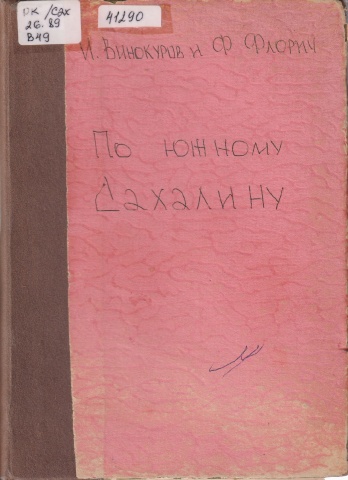 РК/Сах
26.89
В49
41290
И. Винокуров и Ф. Флорич
По южному
Сахалину